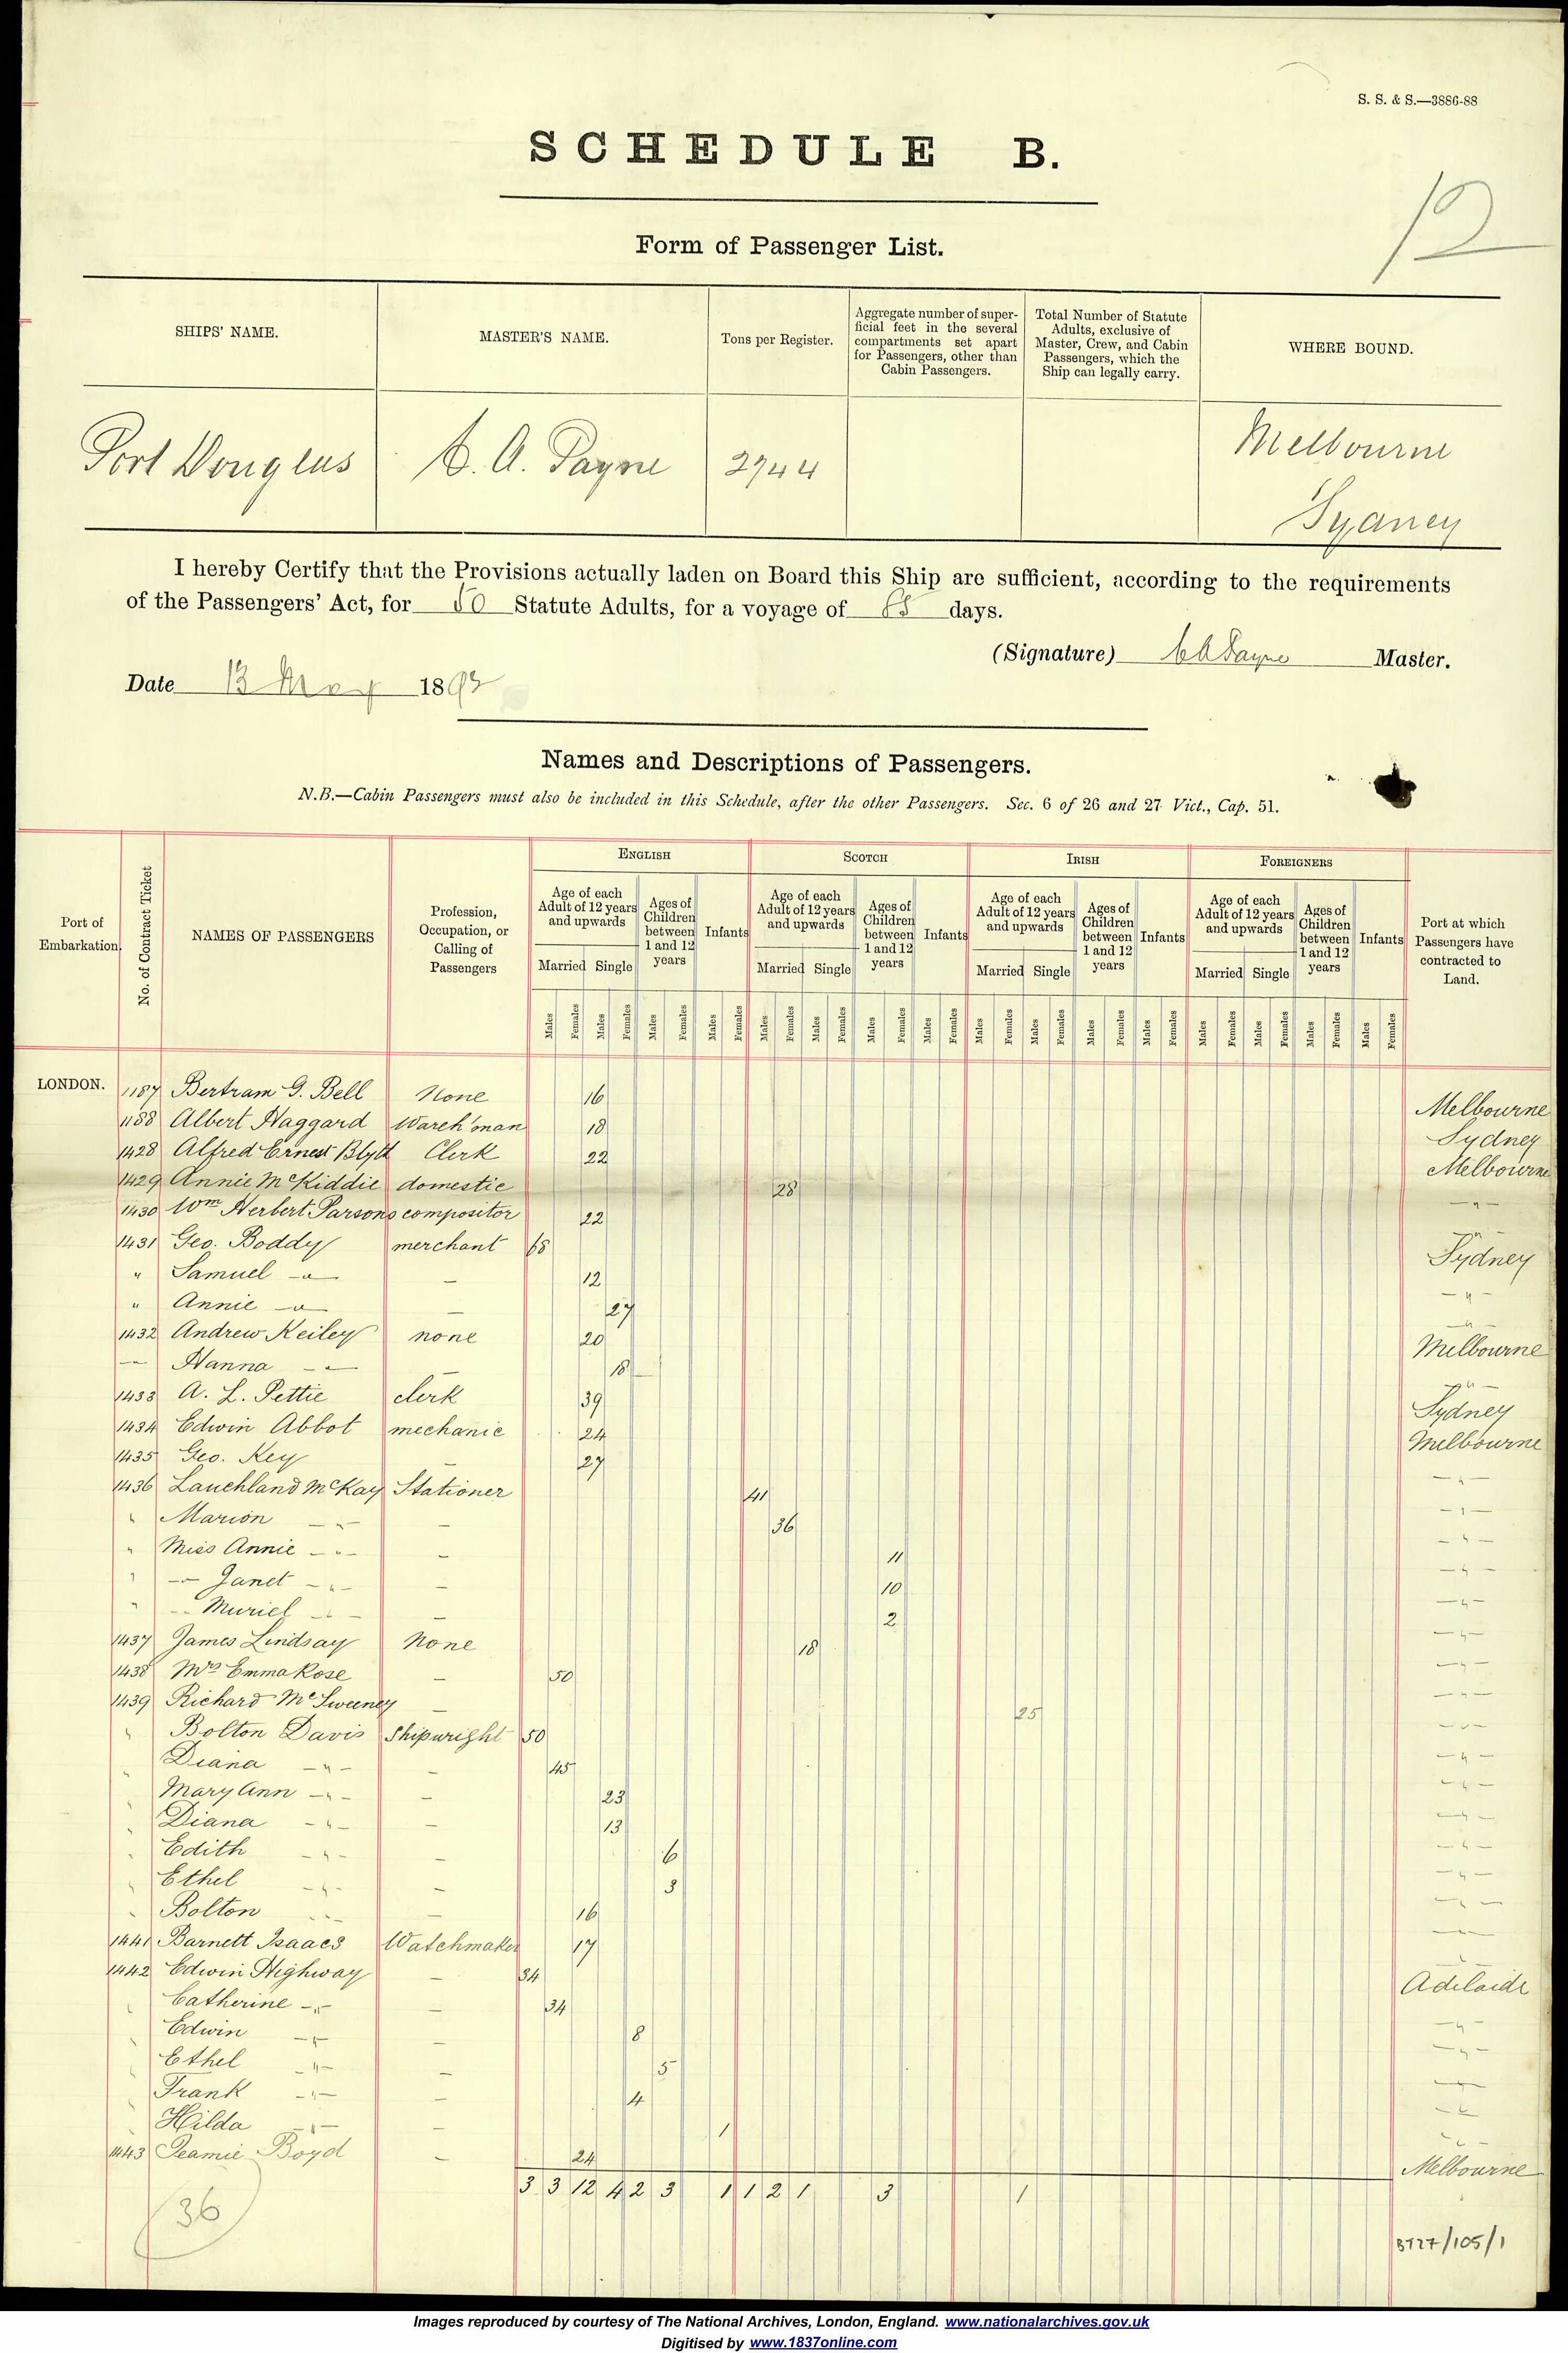 S. S. & S.—3886-88
SCHEDULE B.
12
Form of Passenger List.
SHIPS' NAME.
MASTER'S NAME.
Tons per Register.
Aggregate number of super-
ficial feet in the several
compartments set apart
for Passengers, other than
Cabin Passengers.
Total Number of Statute
Adults, exclusive of
Master, Crew, and Cabin
Passengers, which the
Ship can legally carry.
WHERE BOUND.
Port Douglas A. Payne 2744 Melbourne
Sydney
I hereby Certify that the Provisions actually laden on Board this Ship are sufficient, according to the requirements
of the Passengers' Act, for 50 Statute Adults, for a voyage of days.
(Signature) Payne Master.
Date 13 May 189
Names and Descriptions of Passengers.
N.B.—Cabin Passengers must also be included in this Schedule, after the other Passengers. Sec. 6 of 26 and 27 Vict., Cap. 51.
Port of
Embarkation.
No. of Contract Ticket
NAMES OF PASSENGERS
Profession,
Occupation, or
Calling of
Passengers
ENGLISH
Age of each
Adult of 12 years
and upwards
Married Single
Ages of
Children
between
1 and 12
years
Infants
Males Females Males Females Males Females Males Females
SCOTCH
Age of each
Adult of 12 years
and upwards
Married Single
Ages of
Children
between
1 and 12
years
Infants
Males Females Males Females Males Females Males Females
IRISH
Age of each
Adult of 12 years
and upwards
Married Single
Ages of
Children
between
1 and 12
years
Infants
Males Females Males Females Males Females Males Females
FOREIGNERS
Age of each
Adult of 12 years
and upwards
Married Single
Ages of
Children
between
1 and 12
years
Infants
Males Females Males Females Males Females Males Females
Port at which
Passengers have
contracted to
Land.
LONDON. 1187 Bertram G. Bell None 16 Melbourne
1188 Albert Haggard Wareh'man 18 Sydney
1428 Alfred Ernest Blyth Clerk 22 Melbourne
1429 Annie McKiddie domestic 28 — " —
1430 Wm Herbert Parsons compositor 22 — " —
1431 Geo. Boddy merchant 68 Sydney
" Samuel — " — — 12 — " —
" Annie — " — — 27 — " —
1432 Andrew Keiley none 20 Melbourne
— " — Hanna — " — — 18 — " —
1433 A. L. Pettie clerk 39 Sydney
1434 Edwin Abbot mechanic 24 Melbourne
1435 Geo. Key — 27 — " —
1436 Lauchland McKay Stationer 41 — " —
" Marion — " — — 36 — " —
" Miss Annie — " — — 11 — " —
" — " — Janet — " — — 10 — " —
" — " — Muriel — " — — 2 — " —
1437 James Lindsay None 18 — " —
1438 Mrs Emma Rose — 50 — " —
1439 Richard McSweeney — 25 — " —
" Bolton Davis Shipwright 50 — " —
" Diana — " — — 45 — " —
" Mary Ann — " — — 23 — " —
" Diana — " — — 13 — " —
" Edith — " — — 6 — " —
" Ethel — " — — 3 — " —
" Bolton — " — — 16 — " —
1441 Barnett Isaacs Watchmaker 17 — " —
1442 Edwin Highway — 34 Adelaide
" Catherine — " — — 34 — " —
" Edwin — " — — 8 — " —
" Ethel — " — — 5 — " —
" Frank — " — — 4 — " —
" Hilda — " — — 1 — " —
1443 Boyd — 24 Melbourne
3 3 12 4 2 3 1 1 2 1 3 1
36
BT27/105/1
Images reproduced by courtesy of The National Archives, London, England. www.nationalarchives.gov.uk
Digitised by www.1837online.com